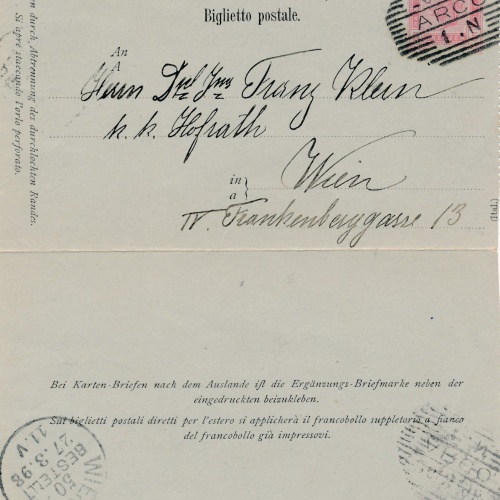 Biglietto postale.
ARCO
1 N
An
A
Herrn Franz Klein
k. k. Hofrath
in
a
Wien
IV. Frankenberggasse 13
(Ital.)
en durch Abtrennung des durchlochten Randes.
Si apre staccando l'orlo perforato.
Bei Karten-Briefen nach dem Auslande ist die Ergänzungs-Briefmarke neben der
eingedruckten beizukleben.
Sui biglietti postali diretti per l'estero si applicherà il francobollo suppletorio a fianco
del francobollo già impressovi.
WIE
50
BESTELLT
27.3.98
11.V